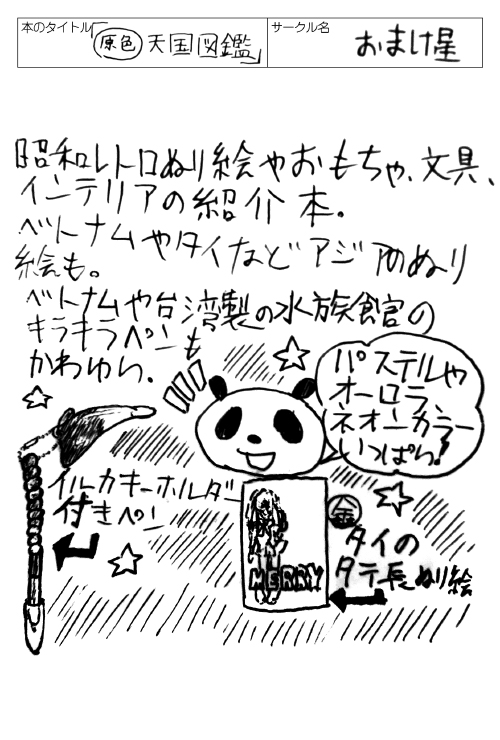 本のタイトル
「原色 天国図鑑」
サークル名
おまけ星
昭和レトロぬり絵やおもちゃ、文具、
インテリアの紹介本。
ベトナムやタイなどアジアのぬり
絵も。
ベトナムや台湾製の水族館の
キラキラペンも
かわゆい、
パステルや
オーロラ、
ネオンカラー
いっぱい!
イルカキーホルダー
付きペン
MERRY
金
タイの
タテ長ぬり絵